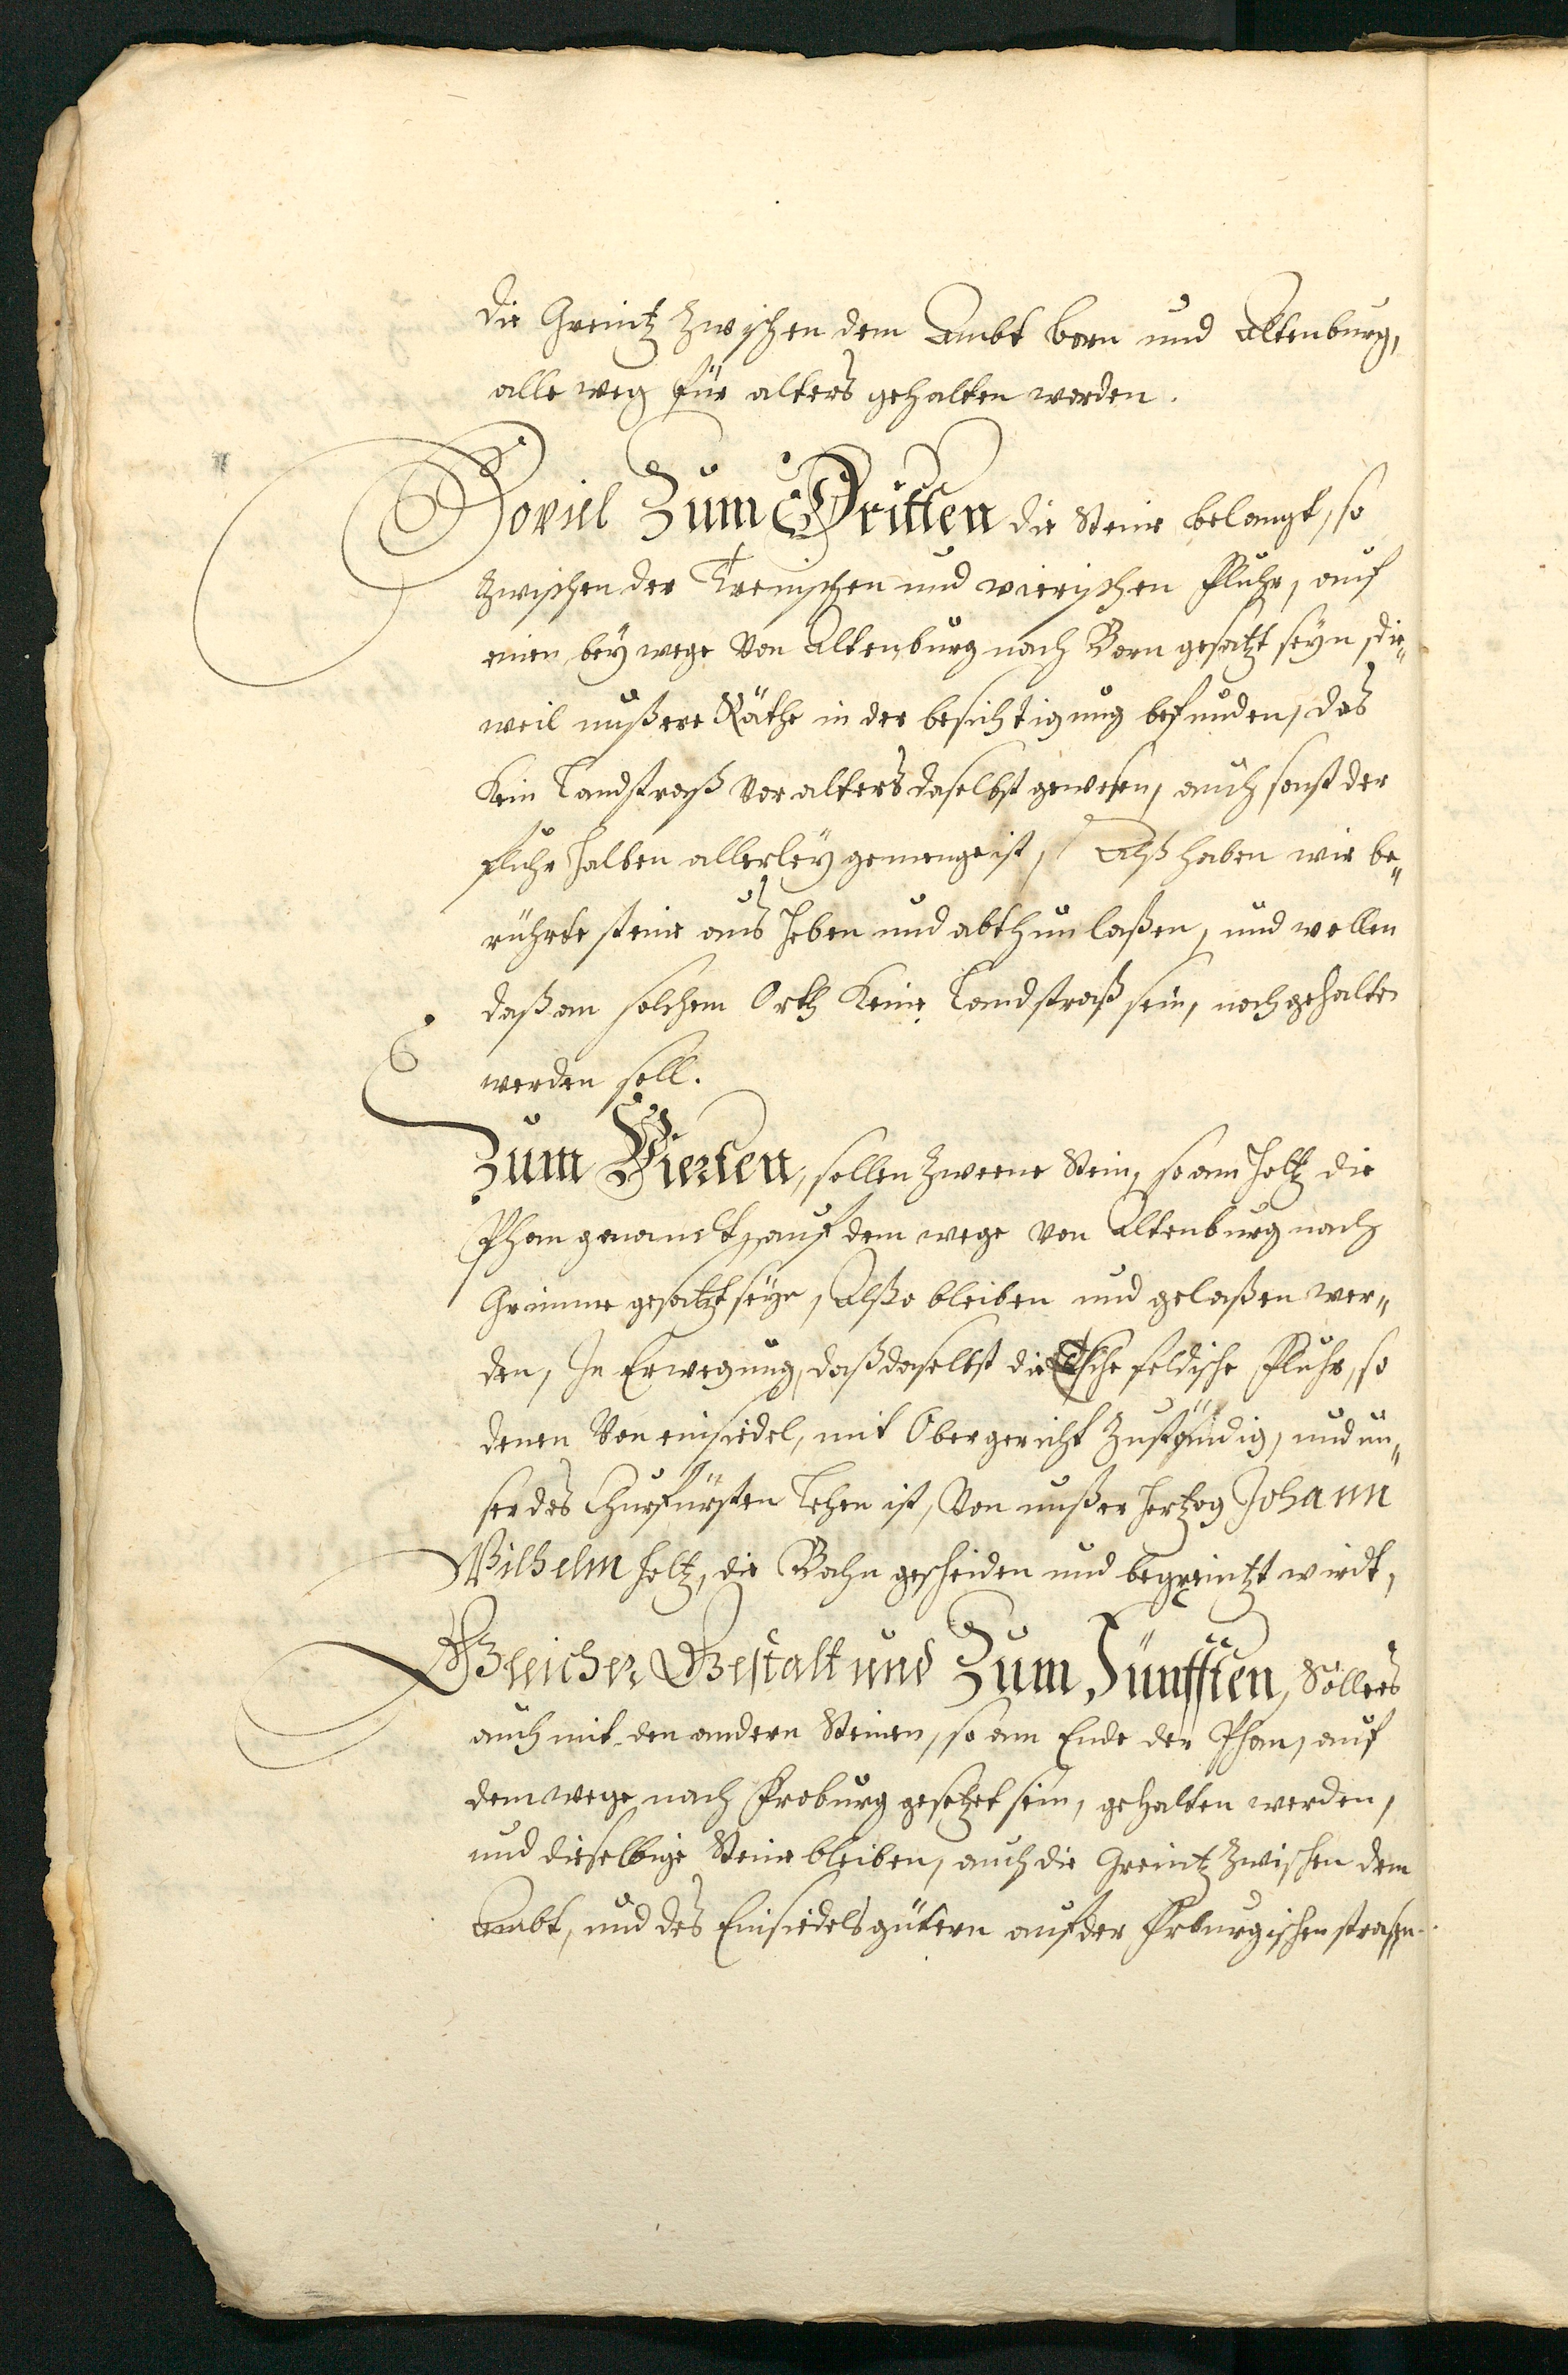 die Greintz zwischen dem Ambt Born und Altenburg,
alle weg für alters gehalten worden.
Soviel Zum Dritten die Steine belangt, so
zwischen der Trenischen und wierischen Fluhr, auf
einen bey wege von Altenburg nach Born gesatzt seyn, die„
weil unßere Räthe in der besichtigung befunden, das
Kein Landstraß vor alters daselbst gewesen, auch sonst der
Fluhr halben allerley gemenge ist, Alß haben wir be„
rührte steine aus heben und abthun laßen, und wollen
daß an solchem Orth Keine Landstraß sein, noch gehalten
werden soll.
Zum Vierten, sollen zweene Stein, so am holtz die
Phan genandt, auf dem wege von Altenburg nach
Grimme gesatzt seyn, Alßo bleiben und gelaßen wer„
den, In Erwegung, daß daselbst die Esche feldische Fluhr, so
denen Von einsiedel, mit Obergericht zuständig, und un„
ser des Churfürsten Lehen ist, Von unßer Hertzog Johann
Wilhelm holtz, die Bahn gescheiden und begreintzt wirdt,
Gleicher Gestalt und Zum Fünfften, Söllers
auch mit den andern Steinen, so am Ende der Phan, auf
dem wege nach Froburg gesetzet sein, gehalten werden,
und dieselbige Steine bleiben, auch die Greintz zwischen dem
Ambt, und des Einsiedels gütern auf der Frburgischen straßen